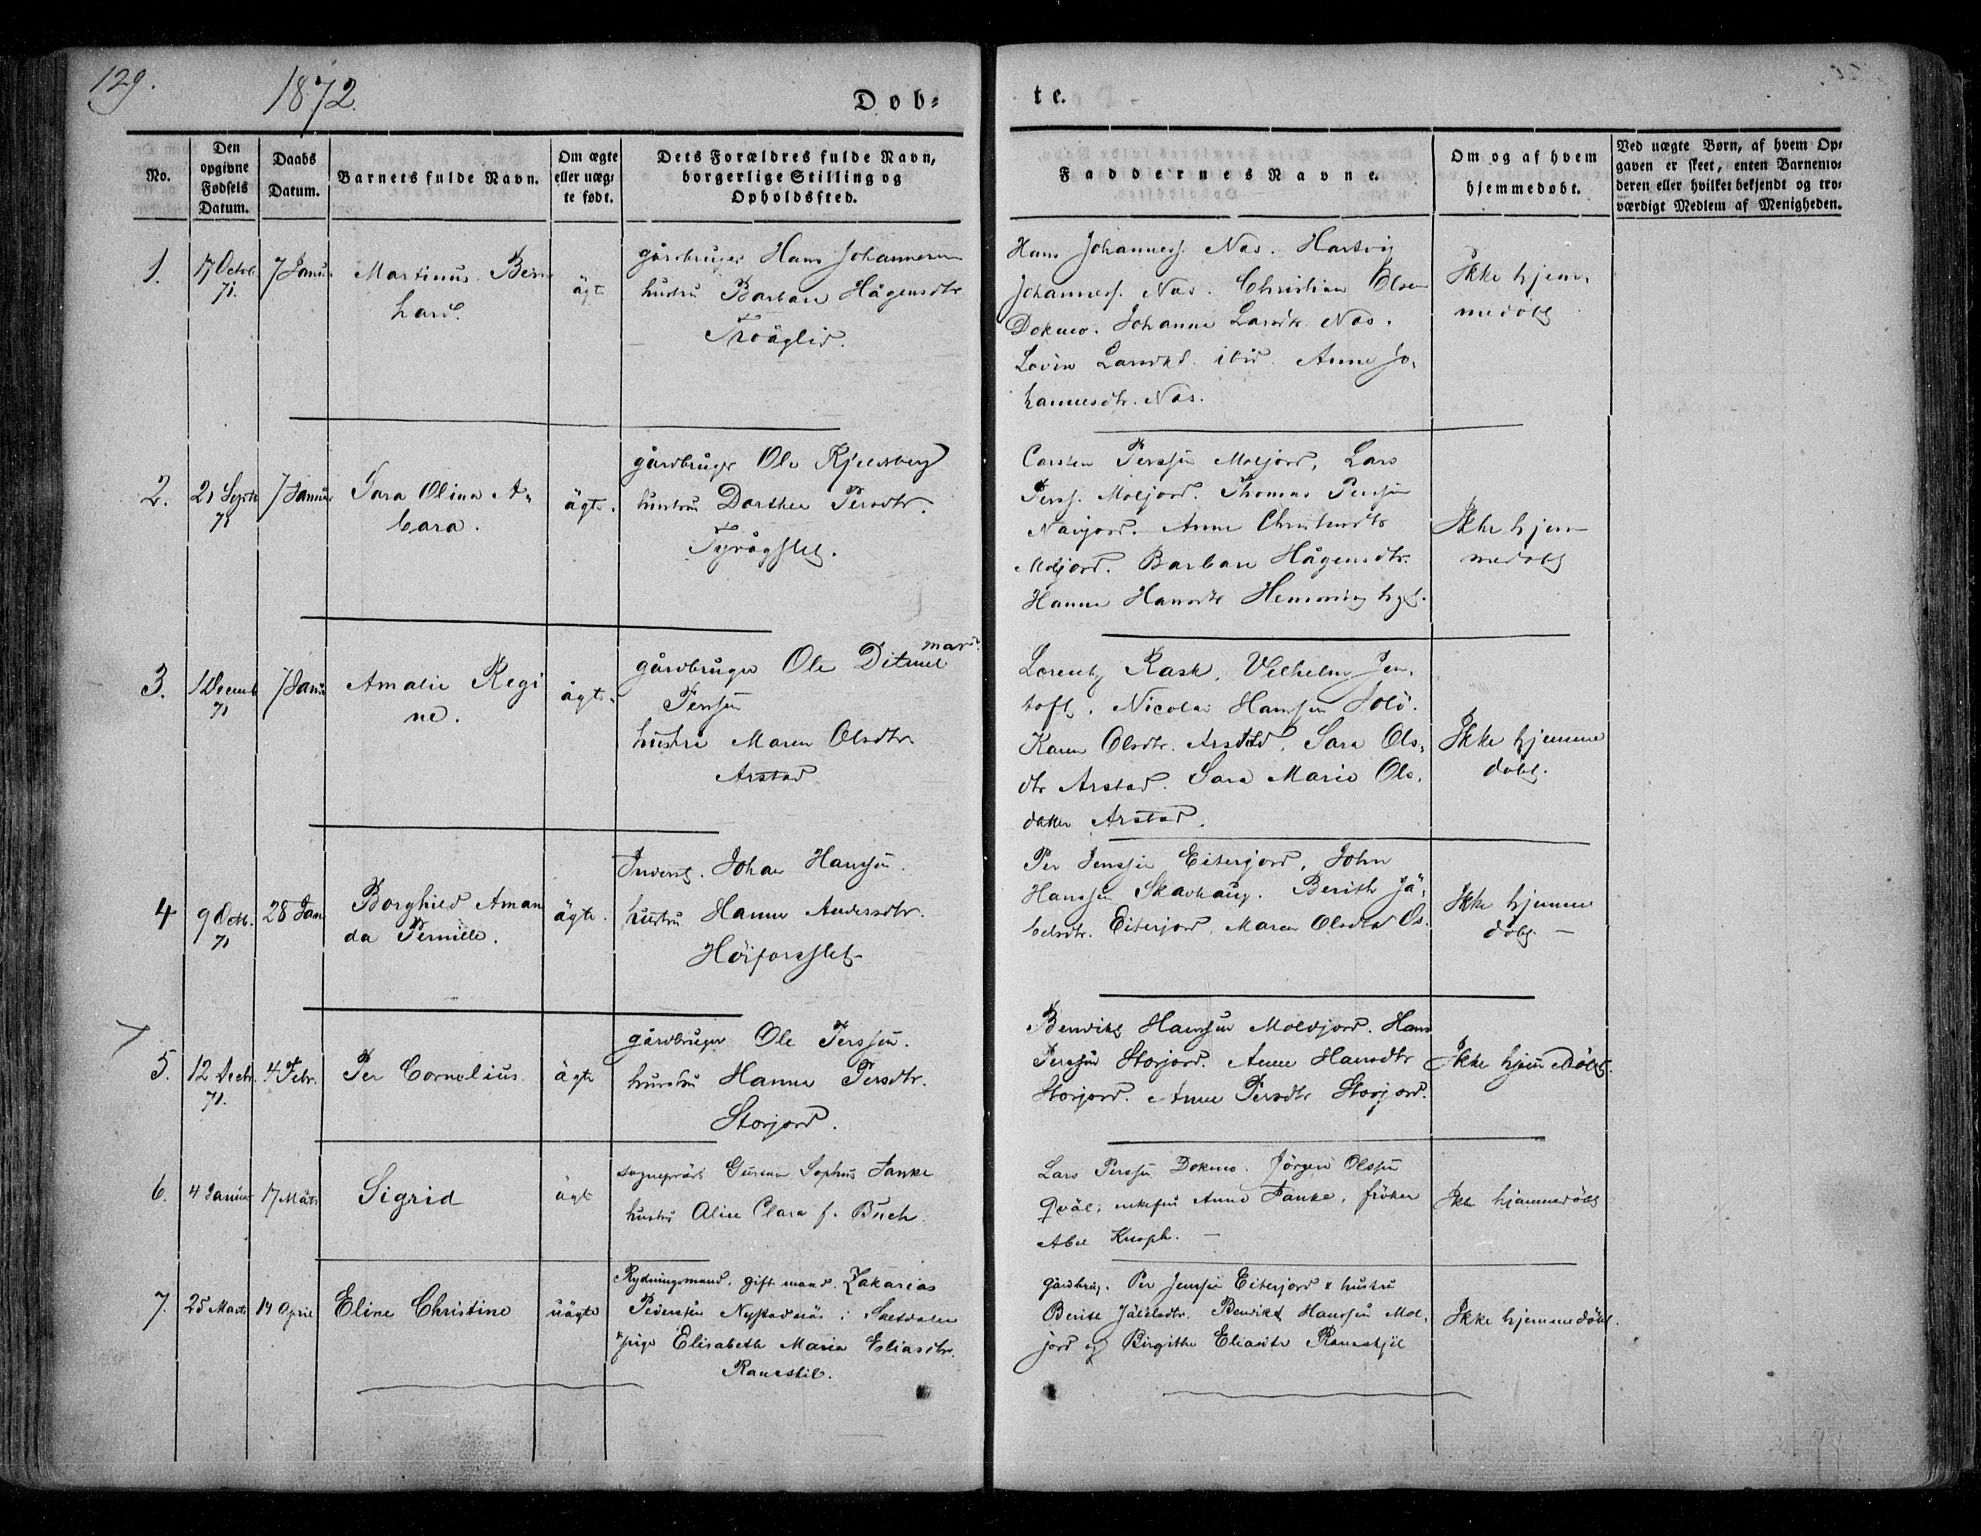 129.
1872.
Døb-
te.
No.
Den
opgivne
Fødsels
Datum.
Daabs
Datum.
Barnets fulde Navn.
Om ægte
eller uæg-
te født.
Dets Forældres fulde Navn,
borgerlige Stilling og
Opholdssted.
Faddernes Navne.
Om og af hvem
hjemmedøbt.
Ved uægte Børn, af hvem Op-
gaven er skeet, enten Barnemo-
deren eller hvilket bekjendt og tro-
værdigt Medlem af Menigheden.
1.
17 Octob.
71.
7 Januar
Martinus Bern
hard.
ägt
gårdbruger Hans Johannesen
hustru Barbara Hågensdtr
Troåglid.
Hans Johanness. Næs. Hartvig
Johanness. Næs. Christian Olsen
Dokmo. Johanne Larsdtr. Næs.
Larsdtr. ibid. Anne Jo-
hannesdtr. Næs.
Ikke hjem-
medöbt
2.
21 Septb
71
7 Januar
Sara Olina A-
bara.
ägte.
gårdbruger Ole Kjeldsberg
hustru Dorthea Persdtr.
Carsten Perssøn Moljord, Lars
Perss. Moljord. Thomas Perssøn
Anne Christensdtr
Moljord. Barbara Hågensdtr.
Hanna Hansdtr Hemminghyt.
Ikke hjem-
medöbt
3.
1 Decemb
71
7 Janu
Amalie Regi
ne.
ägte.
gårdbruger Ole Ditmar
Jenssøn
hustru Maren Olsdtr.
Arstad
Lorentz Rask, Vilhelm Jen-
toft, Nicolai Hanssøn Solö.
Karen Olsdtr. Arstad. Sara Ols-
dtr Arstad. Sara Marie Ols-
datter Arstad.
Ikke hjemme
döbt.
4
9 Octb.
71
28 Jan
Borghild Aman
da Pernille.
ägte.
Inderst. Johan Hanssøn.
hustru Hanna Andersdtr.
Höiforsslet
Per Jenssøn Eiterjord, John
Hanssøn Skavhaug. Berith Jä-
belsdtr. Eiterjord. Maren Olsdtr Os.
Ikke hjemme
döbt. —
5.
12 Decbr.
71.
4 Febr.
Per Cornelius
ägte
gårdbruger Ole Perssøn.
hustru Hanna Persdtr.
Storjord.
Bendikt Hanssøn Moldjord. Hans
Perssøn Storjord. Anne Hansdtr
Storjord. Anne Persdtr Storjord.
Ikke hjemmedöbt.
6.
4 Januar
17 Marts
Sigrid
ägt
sognepräst Gustav Sophus Fanke
hustru Alice Clara f. Buch.
Lars Perssøn Dokmo. Jörgen Olssøn
Qväl; enkefru Anne Fanke, fröken
Abel Knoph. —
Ikke hjemmedöbt
7.
25 Marts
14 April
Eline Christine
uägte
Rydningsmand, gift mand. Zakarias
Pederssøn Nystadnäs i Saltdalen
& pige Elisabeth Maria Eliasdtr.
Ranestil.
gårdbrug. Per Jenssøn Eiterjord & hustru
Berith Jäbelsdtr. Bendikt Hanssøn Mol-
jord og Birgithe Eliasdtr Raneskjöl
Ikke hjemmedöbt.